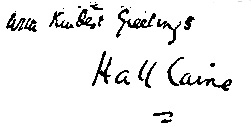 With Kindest Greetings
Hall Caine